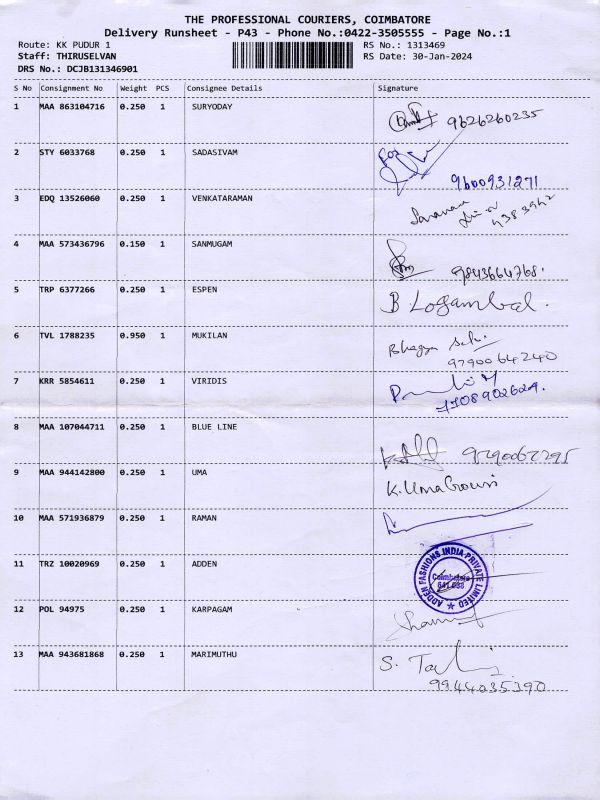 THE PROFESSIONAL COURIERS, COIMBATORE
Delivery Runsheet - P43 - Phone No.:0422-3505555 - Page No.:1
Route: KK PUDUR 1 RS No.: 1313469
Staff: THIRUSELVAN RS Date: 30-Jan-2024
DRS No.: DCJB131346901
S No Consignment No Weight PCS Consignee Details Signature
1 MAA 863104716 0.250 1 SURYODAY 9626260235
2 STY 6033768 0.250 1 SADASIVAM For
9600931271
3 EDQ 13526060 0.250 1 VENKATARAMAN
4 MAA 573436796 0.150 1 SANMUGAM 9843664768.
5 TRP 6377266 0.250 1 ESPEN B. Logambal.
6 TVL 1788235 0.950 1 MUKILAN Bhagya
9790064240
7 KRR 5854611 0.250 1 VIRIDIS
8 MAA 107044711 0.250 1 BLUE LINE
9 MAA 944142800 0.250 1 UMA K.UmaGowri
10 MAA 571936879 0.250 1 RAMAN
11 TRZ 10020969 0.250 1 ADDEN ADDEN FASHIONS INDIA PRIVATE LIMITED
Coimbatore
641 038
12 POL 94975 0.250 1 KARPAGAM
13 MAA 943681868 0.250 1 MARIMUTHU S.
9944035390